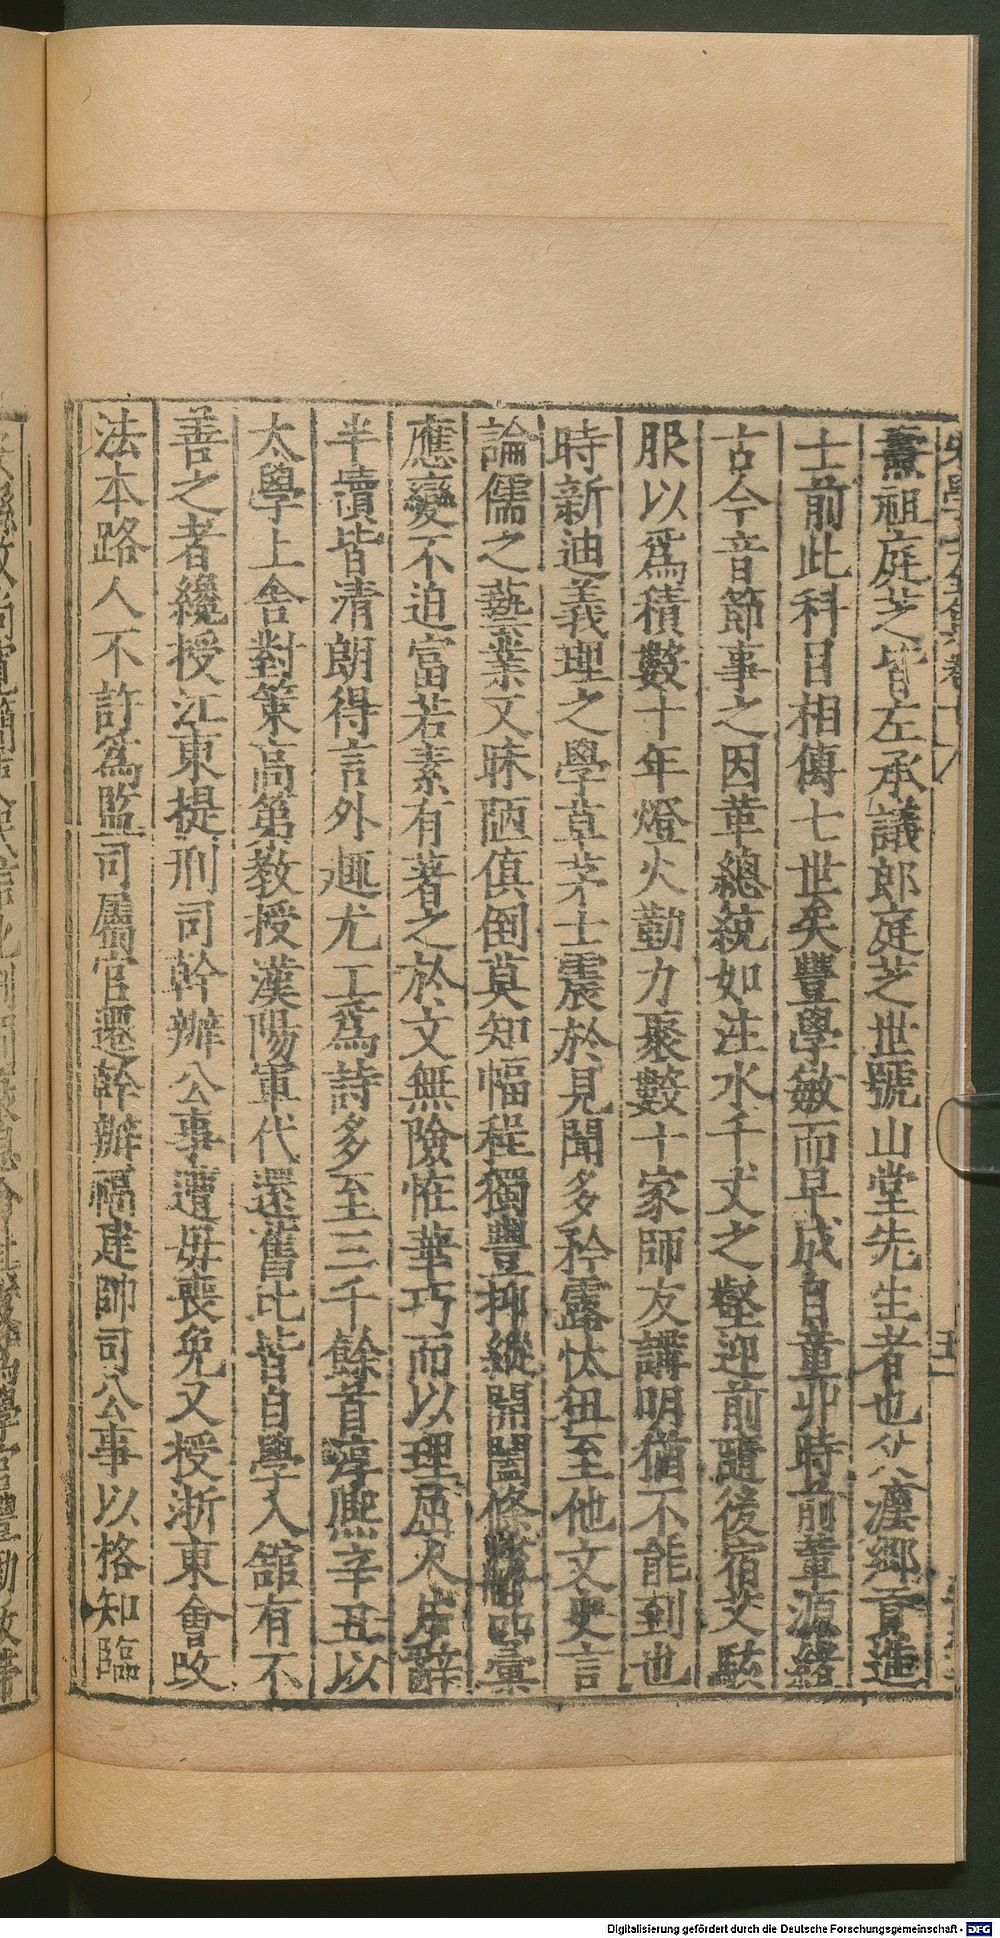 燾祖庭芝皆左承議郎庭芝世號山堂先生者也父瀵鄉貢進
士前此科目相傳七世矣豐學敏而早成自童丱時前輩源緒
古今音節事之因革總統如注水千丈之壑迎前隨後宿艾駭
服以爲積數十年燈火勤力聚數十家師友講明猶不能到也
時新迪義理之學草茅士震於見聞多矜露忲狃至他文史言
論儒之藝業又昧陋傎倒莫知幅程獨豐抑縱開闔條品彙
應變不迫富若素有著之於文無險怪華巧而以理屈人片辭
半牘皆清朗得言外趣尤工爲詩多至三千餘首淳熙辛丑以
太學上舍對策高第教授漢陽軍代還舊比皆自學入館有不
善之者纔授江東提刑司幹辦公事遭母喪免又授浙東會改
法本路人不許爲監司屬官還幹辦福建帥司公事以格知臨
Digitalisierung gefördert durch die Deutsche Forschungsgemeinschaft - DFG